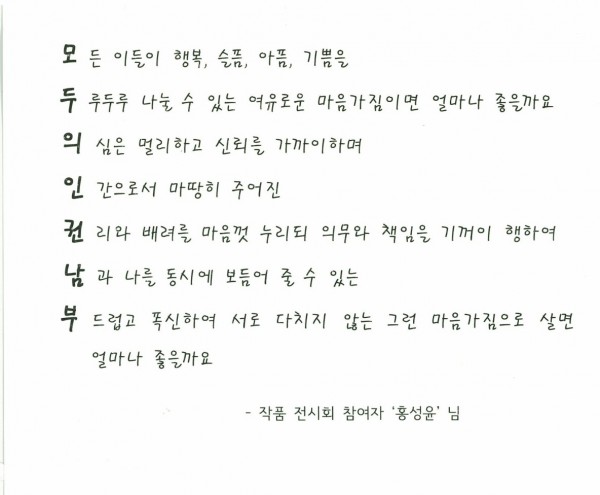 모든 이들이 행복, 슬픔, 아픔, 기쁨을
두루두루 나눌 수 있는 여유로운 마음가짐이면 얼마나 좋을까요
의심은 멀리하고 신뢰를 가까이하며
인간으로서 마땅히 주어진
권리와 배려를 마음껏 누리되 의무와 책임을 기꺼이 행하여
남과 나를 동시에 보듬어 줄 수 있는
부드럽고 폭신하여 서로 다치지 않는 그런 마음가짐으로 살면
얼마나 좋을까요
- 작품 전시회 참여자 '홍성윤' 님